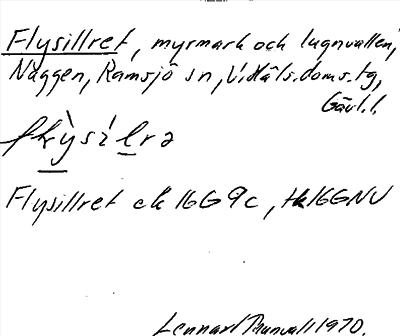 Flysillret, myrmark och lugnvallen,
Näggen, Ramsjö sn, V.Häls.doms.tg,
Gävl.l.
Flysillret ek 16G 9c, Hk16GNV
Lennart 1970.